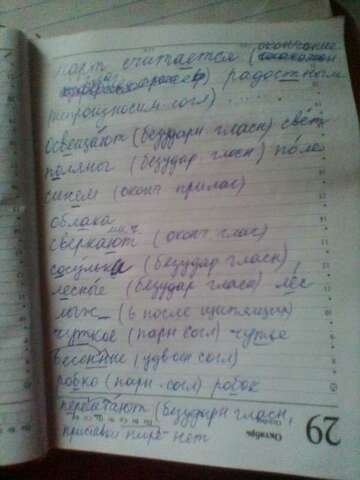 март считается (окончание
радостным
непроизносим согл)
Освещают (безударн гласн) свет
поляног (безудар гласн) поле
синем (оконч прилаг)
облака
сверкают (оконч глаг)
сосульке (безудар гласн)
лесные (безудар гласн) лес
лыж_ (ь после шипящих)
чуткое (парн согл) чуток
(удвоен согл)
робко (парн согл) робок
перелетают (безударн гласн,
приставки пире- нет
29
Октябрь